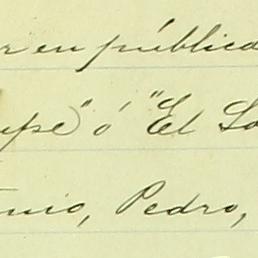 r en pública
upe" ó "El So
nio, Pedro,